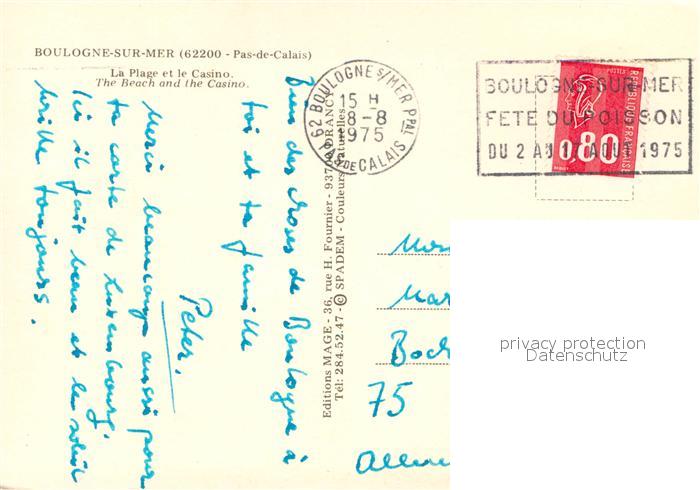 BOULOGNE-SUR-MER (62200 - Pas-de-Calais)
La Plage et le Casino.
The Beach and the Casino.
62 BOULOGNE S/MER PPAL
15 H
8-8
1975
PAS DE CALAIS
BOULOGNE-SUR-MER
FETE DU POISSON
DU 2 AU 17 AOUT 1975
REPUBLIQUE FRANÇAISE
POSTES
0,80
Editions MAGE - 36, rue H. Fournier - 937 DRANCY
Tél: 284.52.47 - © SPADEM - Couleurs Naturelles
Bien des choses de Boulogne à
toi et ta famille
Peter.
Merci beaucoup aussi pour
ta carte de Luxembourg.
Ici il fait beau et le soleil
brille toujours.
Mar
Boch
75
Allem
privacy protection
Datenschutz